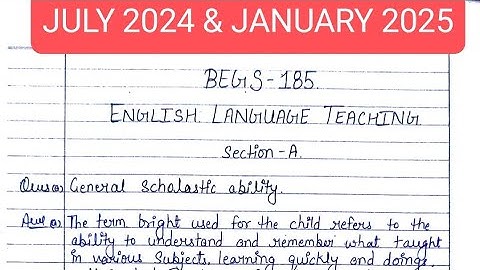 JULY 2024 & JANUARY 2025
BEGS-185.
ENGLISH LANGUAGE TEACHING
Section-A.
Ques(a) General scholastic ability.
Ans(a) The term bright used for the child refers to the
ability to understand and remember what taught
in various subjects, learning quickly and doing